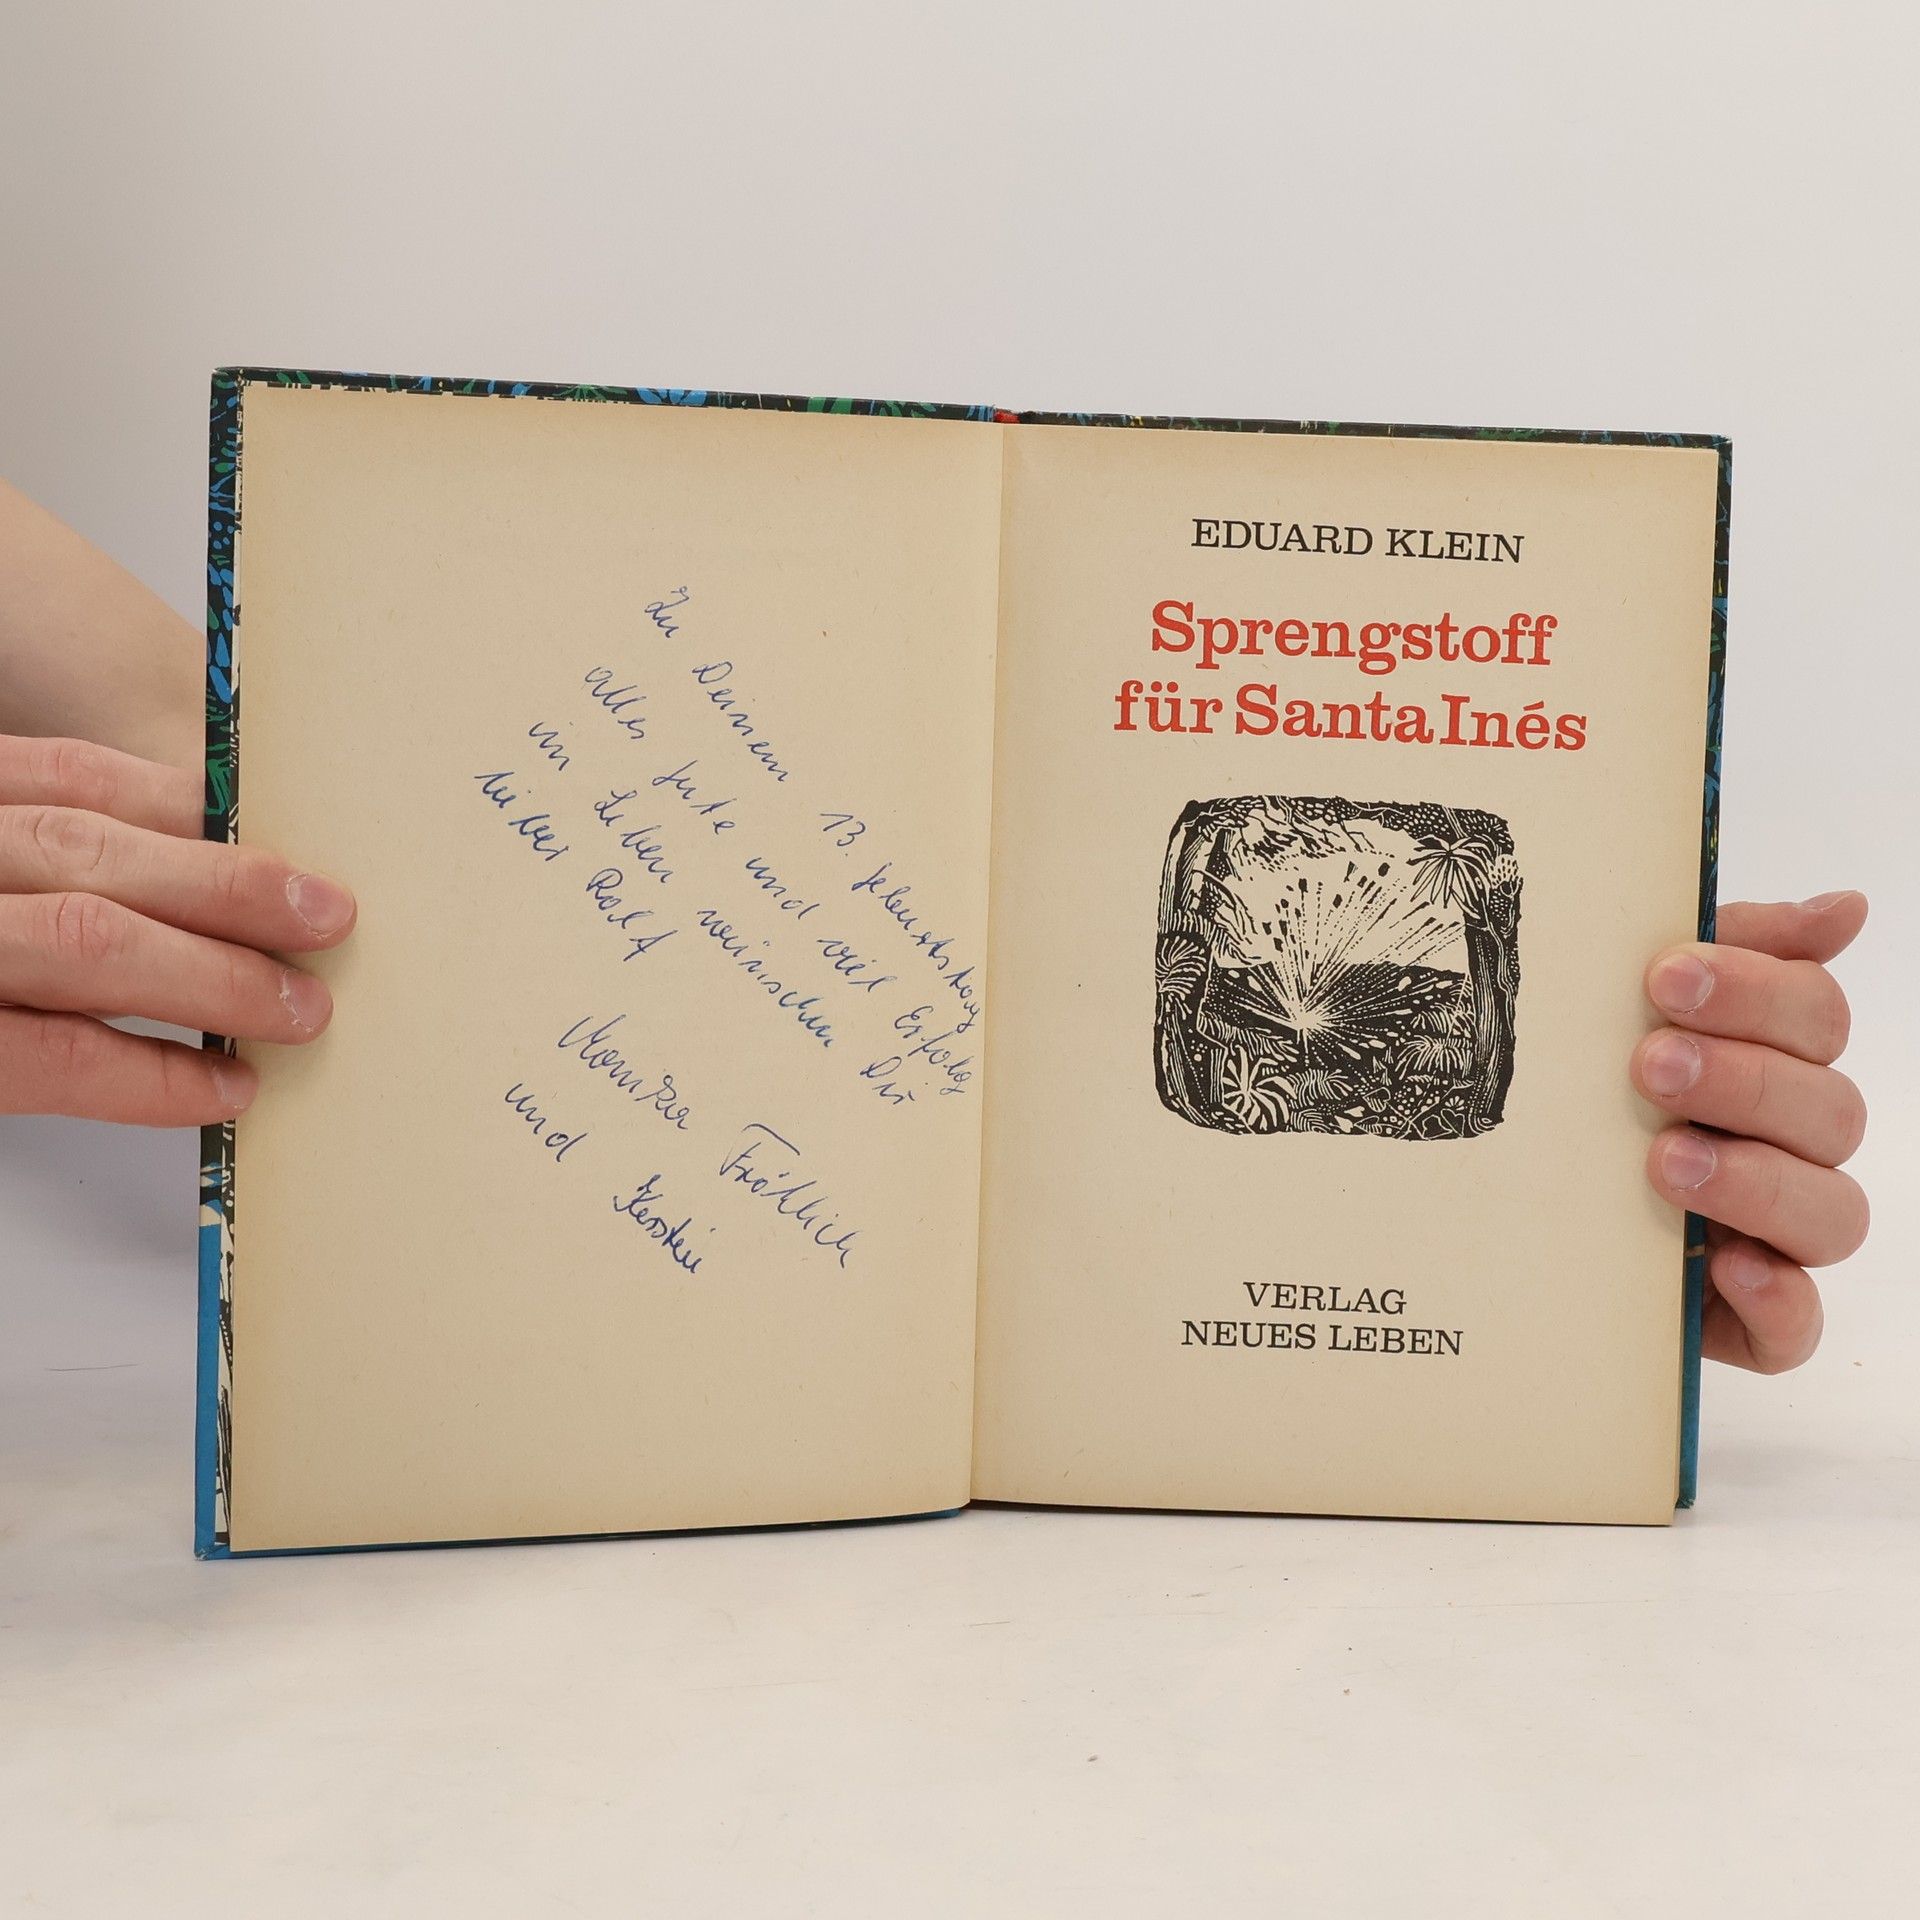 Zu Deinem 13. Geburtstag
alles Gute und viel Erfolg
im Leben wünschen Dir
lieber Rolf
Monika Fröhlich
und Kerstin
EDUARD KLEIN
Sprengstoff
für Santa Inés
VERLAG
NEUES LEBEN